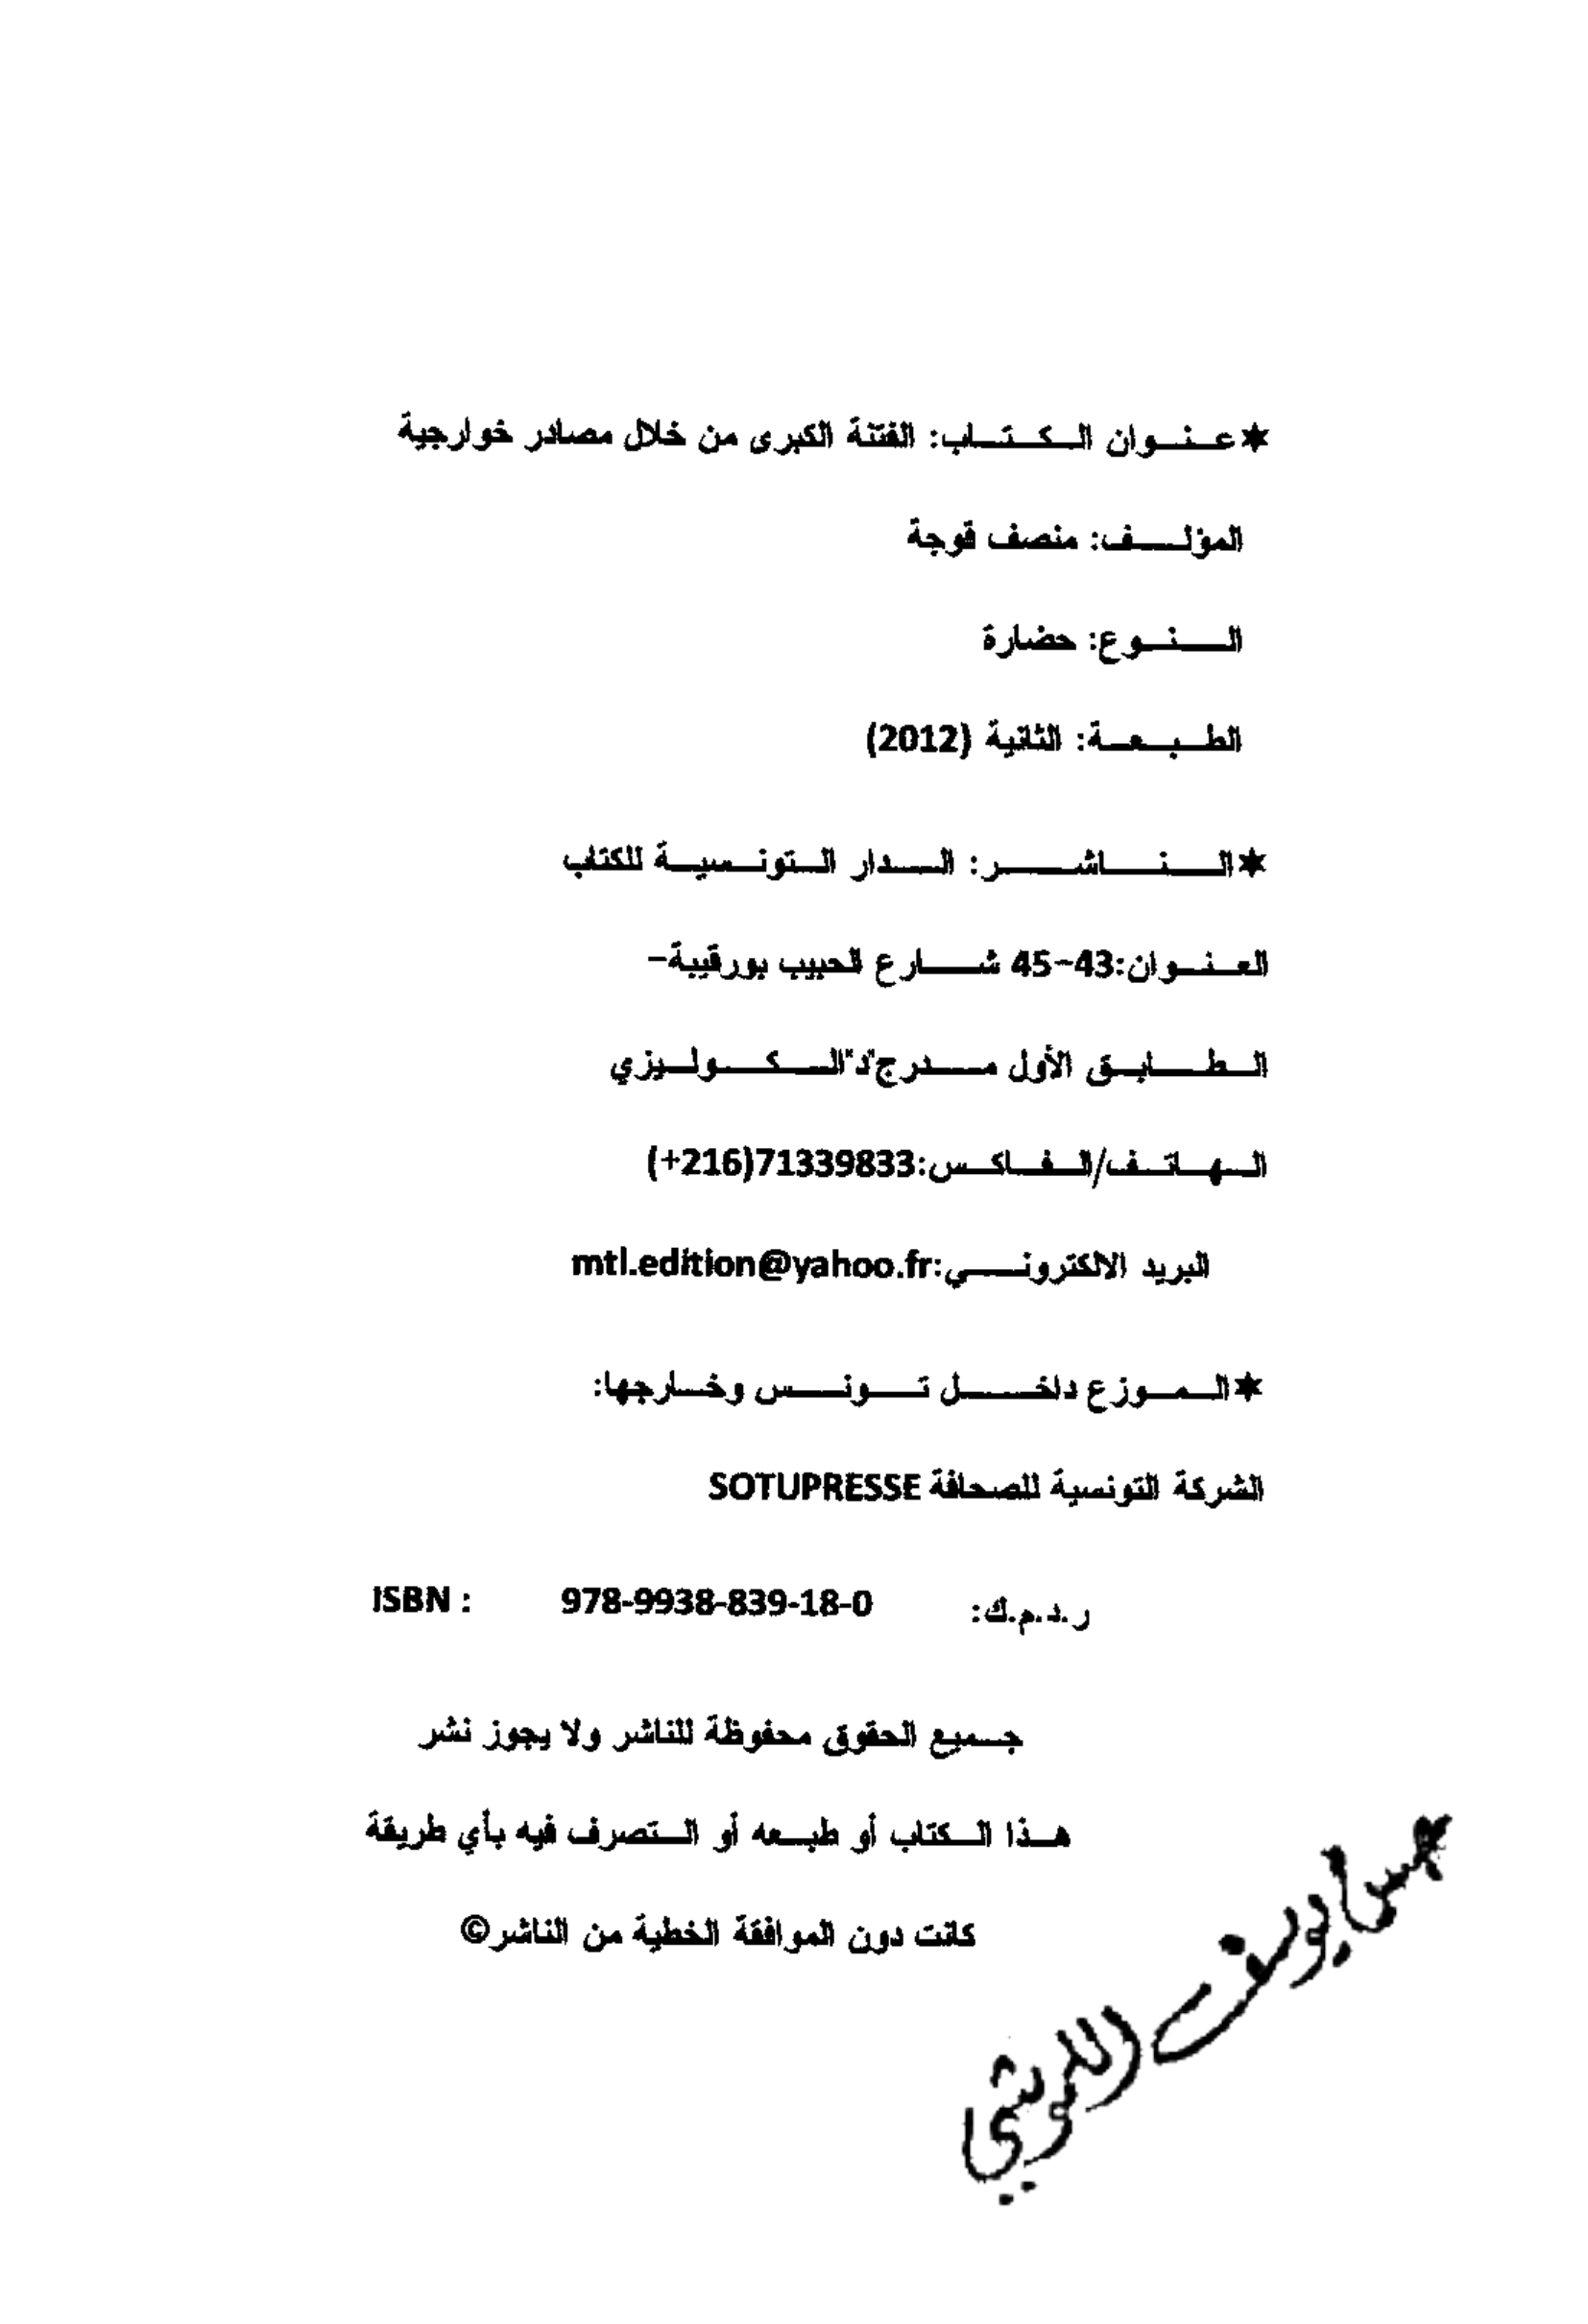 ★عنوان الكتاب: الفتنة الكبرى من خلال مصادر خوارجية
المؤلف: منصف قوجة
النوع: حضارة
الطبعة: الثانية (2012)
★الناشر: الدار التونسية للكتاب
العنوان:43-45 شارع الحبيب بورقيبة-
الطابق الأول مدرج"د"الكوليزي
الهاتف/الفاكس:71339833(216+)
البريد الالكتروني:mtl.edition@yahoo.fr
★الموزع داخل تونس وخارجها:
الشركة التونسية للصحافة SOTUPRESSE
ر.د.م.ك: 978-9938-839-18-0 ISBN :
جميع الحقوق محفوظة للناشر ولا يجوز نشر
هذا الكتاب أو طبعه أو التصرف فيه بأي طريقة
كانت دون الموافقة الخطية من الناشر©
يوسف اللويشي